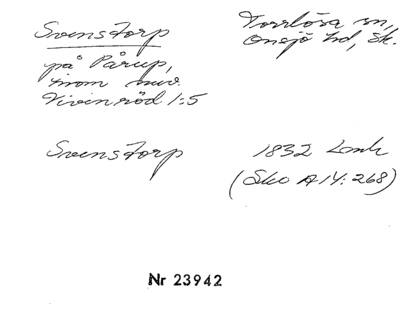 Svenstorp
Torrlösa sn,
Onsjö hd, Sk.
på Pårup,
inom nuv.
Vivinröd 1:5
Svenstorp
1832 Lantm
(Sko A 14: 268)
Nr 23942